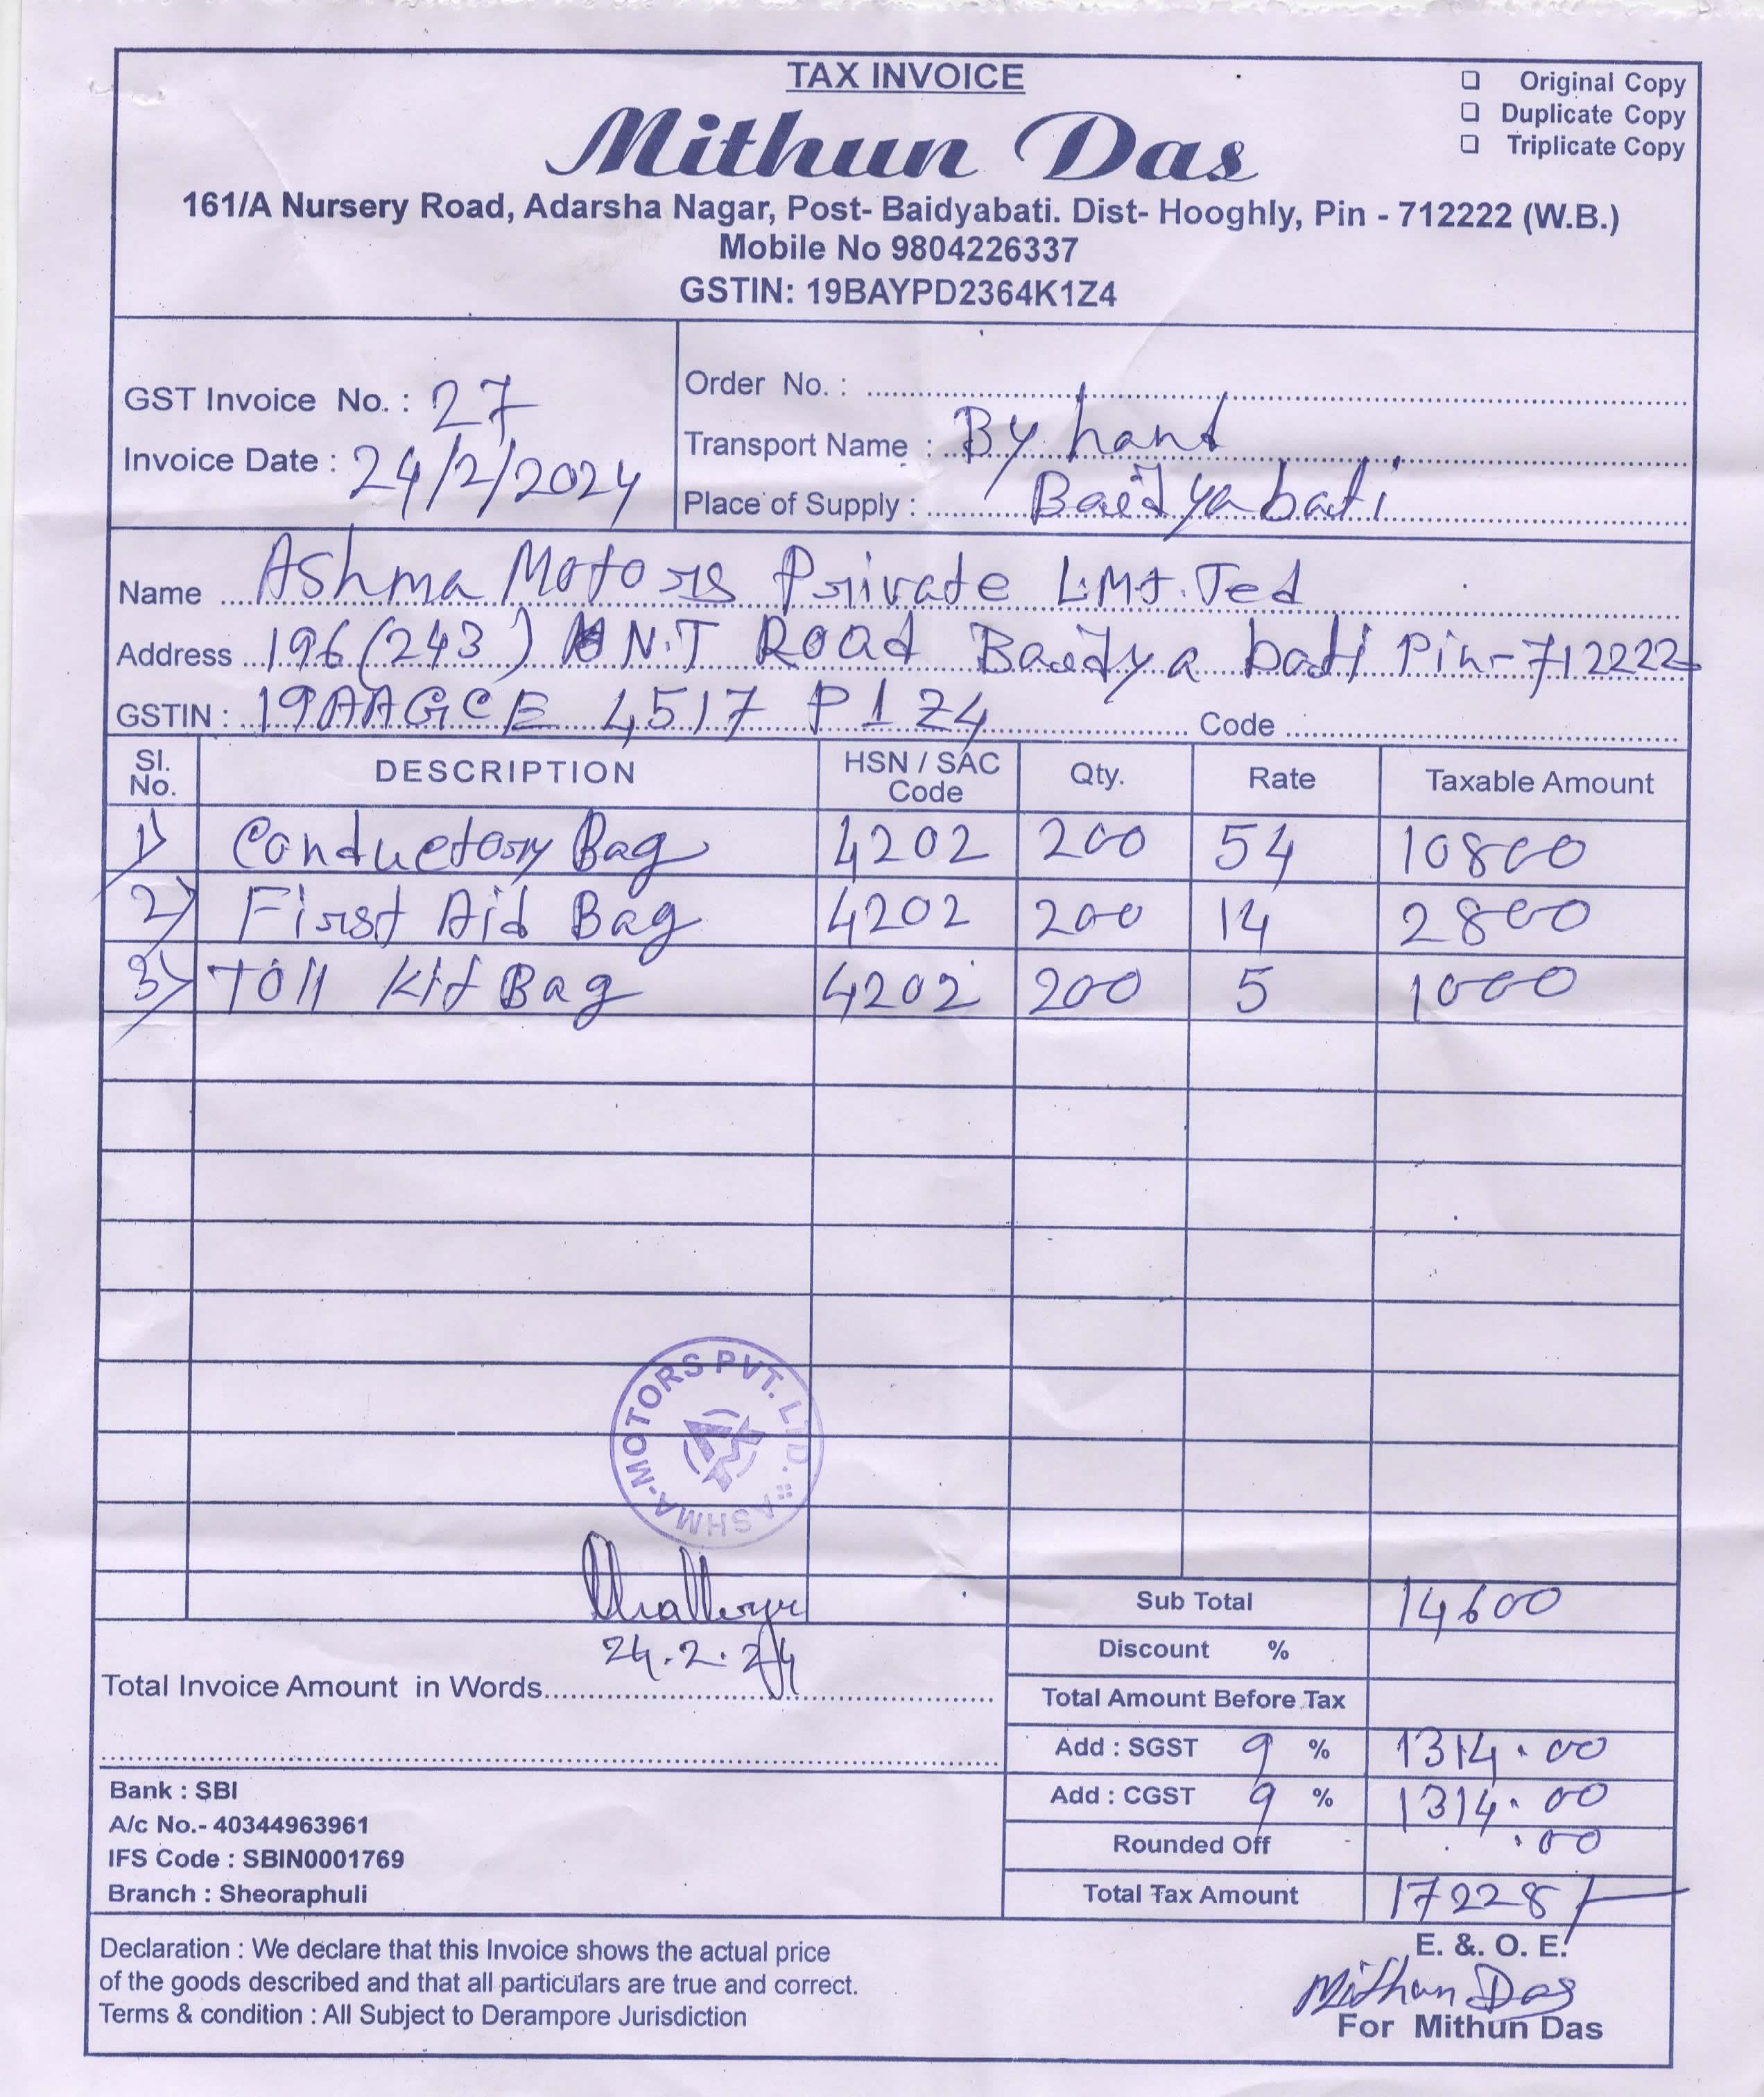 TAX INVOICE
Original Copy
Duplicate Copy
Triplicate Copy
Mithun Das
161/A Nursery Road, Adarsha Nagar, Post- Baidyabati. Dist- Hooghly, Pin - 712222 (W.B.)
Mobile No 9804226337
GSTIN: 19BAYPD2364K1Z4
GST Invoice No. : 27
Invoice Date : 24/2/2024
Order No. :
Transport Name : By hand
Place of Supply : Baidyabati
Name Ashma Motors Private LiMt.Ted
Address 196(243) N.T Road Baidya bati Pin-712222
GSTIN : 19AAGCE 4517 P1Z4 Code
Sl. No. DESCRIPTION HSN / SAC Code Qty. Rate Taxable Amount
1) Conductory Bag 4202 200 54 10800
2) First Aid Bag 4202 200 14 2800
3) Toll kit Bag 4202 200 5 1000
ASHMA-MOTORS PVT. LTD.
24.2.24
Sub Total 14600
Discount %
Total Invoice Amount in Words
Total Amount Before Tax
Add : SGST 9 % 1314.00
Add : CGST 9 % 1314.00
Rounded Off .00
Total Tax Amount 17228/-
Bank : SBI
A/c No.- 40344963961
IFS Code : SBIN0001769
Branch : Sheoraphuli
Declaration : We declare that this Invoice shows the actual price
of the goods described and that all particulars are true and correct.
Terms & condition : All Subject to Derampore Jurisdiction
E. &. O. E.
Mithun Das
For Mithun Das